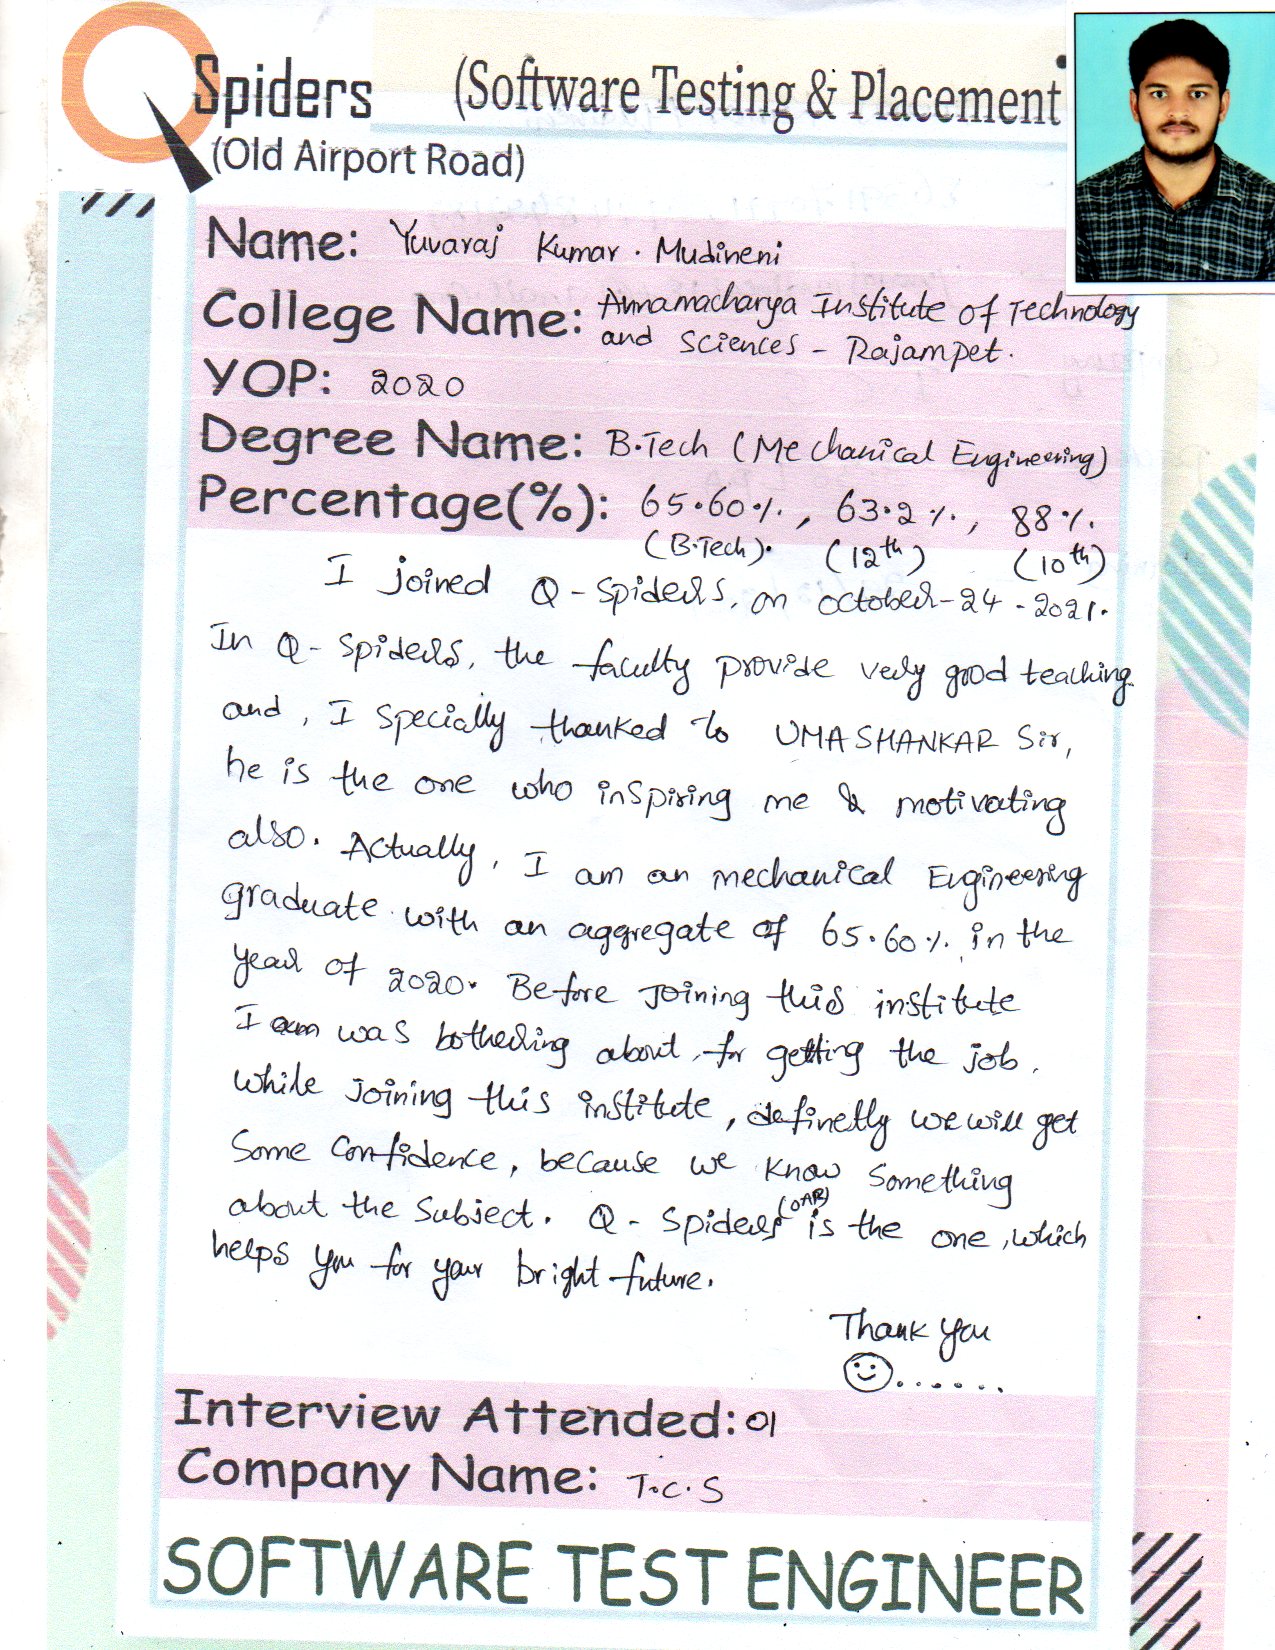 QSpiders (Software Testing & Placement
(Old Airport Road)
Name: Yuvaraj Kumar. Mudineni
College Name: Annamacharya Institute of Technology
and Sciences - Rajampet.
YOP: 2020
Degree Name: B.Tech (Mechanical Engineering)
Percentage(%): 65.60%, 63.2%, 88%.
(B.Tech). (12th) (10th)
I joined Q-Spiders, on october-24-2021.
In Q-Spiders, the faculty provide very good teaching
and, I specially thanked to UMASHANKAR Sir,
he is the one who inspiring me & motivating
also. Actually, I am an mechanical Engineering
graduate with an aggregate of 65.60% in the
year of 2020. Before Joining this institute
I am was bothering about for getting the job.
while joining this institute, definetly we will get
Some Confidence, because we know Something
about the Subject. Q-Spiders (OAR) is the one, which
helps you for your bright future.
Thank you
Interview Attended: 01
Company Name: T.C.S
SOFTWARE TEST ENGINEER